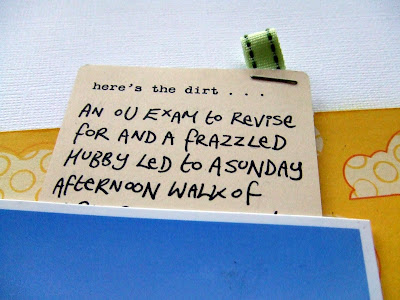 here's the dirt . . .
AN OU EXAM to REVISE
foR AND A fRAZZLED
HUBBY LED to A SUNDAY
AfteRNOON WALK of